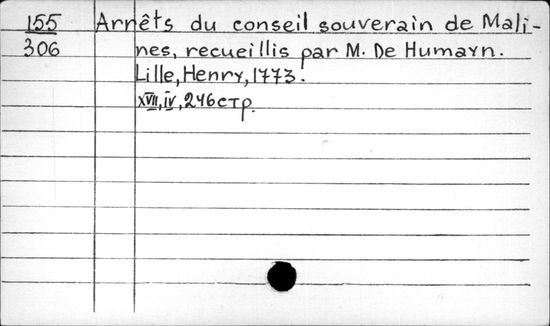 155 Arrêts du conseil souverain de Mali-
306 nes, recueillis par M. De Humayn.
Lille, Henry, 1773.
XVII, IV, 246 стр.